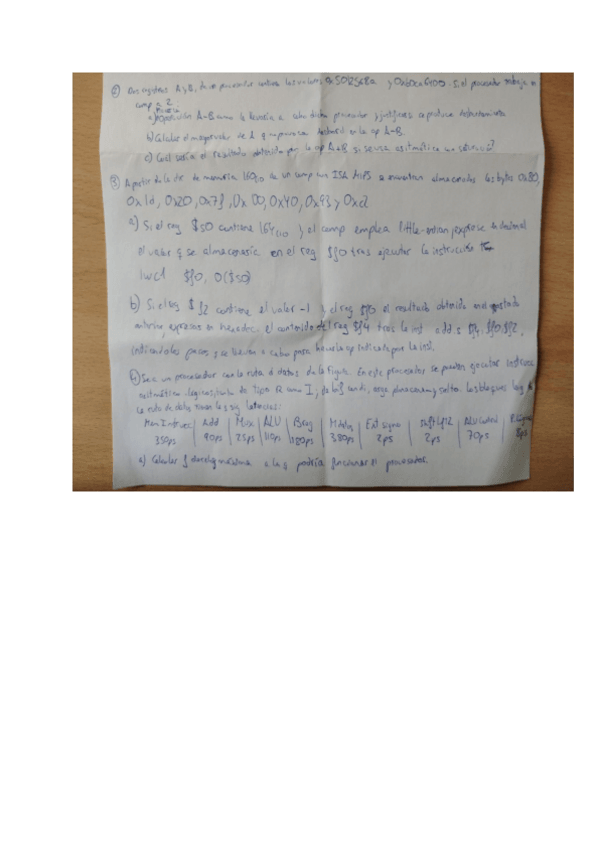 ② Dos registros A y B, de un procesador contiene los valores 0x5012568a y 0x60ca6400. Si el procesador trabaja en
comp a 2
a) operación A-B como la llevaría a cabo dicho procesador y justifique si se produce desbordamiento
b) Calcular el mayor valor de A q no provoca desbord en la op A-B.
c) Cuál sería el resultado obtenido por la op A+B si se usa aritmética
③ A partir de la dir de memoria 1600 de un comp con ISA MIPS se encuentran almacenados los bytes 0x80,
0x1d, 0x20, 0x7f, 0x00, 0x40, 0x93 y 0xd
a) Si el reg $s0 contiene y el comp emplea little-endian, exprese en decimal
el valor q se almacenaría en el reg $f0 tras ejecutar la instrucción
lwc1 $f0, 0($s0)
b) Si el reg $f2 contiene el valor -1 y el reg $f0 el resultado obtenido en el apartado
anterior, expresar en hexadec. el contenido del reg $f4 tras la inst add.s $f4, $f0, $f2,
indicando los pasos q se llevan a cabo para hacer la op indicada por la inst.
④ Sea un procesador con la ruta d datos de la figura. En este procesador se pueden ejecutar instrucc
aritmético-lógicas, tanto de tipo R como I, de carga, almacenam y salto. Los bloques log d
la ruta de datos tienen las sig latencias:
Mem Instrucc | Add | Mux | ALU | B reg | M datos | Ext signo | Shift left 2 | ALU Control |
350ps 90ps 25ps 110ps 180ps 380ps 2ps 2ps 70ps 8ps
a) Calcular f de reloj máxima a la q podría funcionar el procesador.